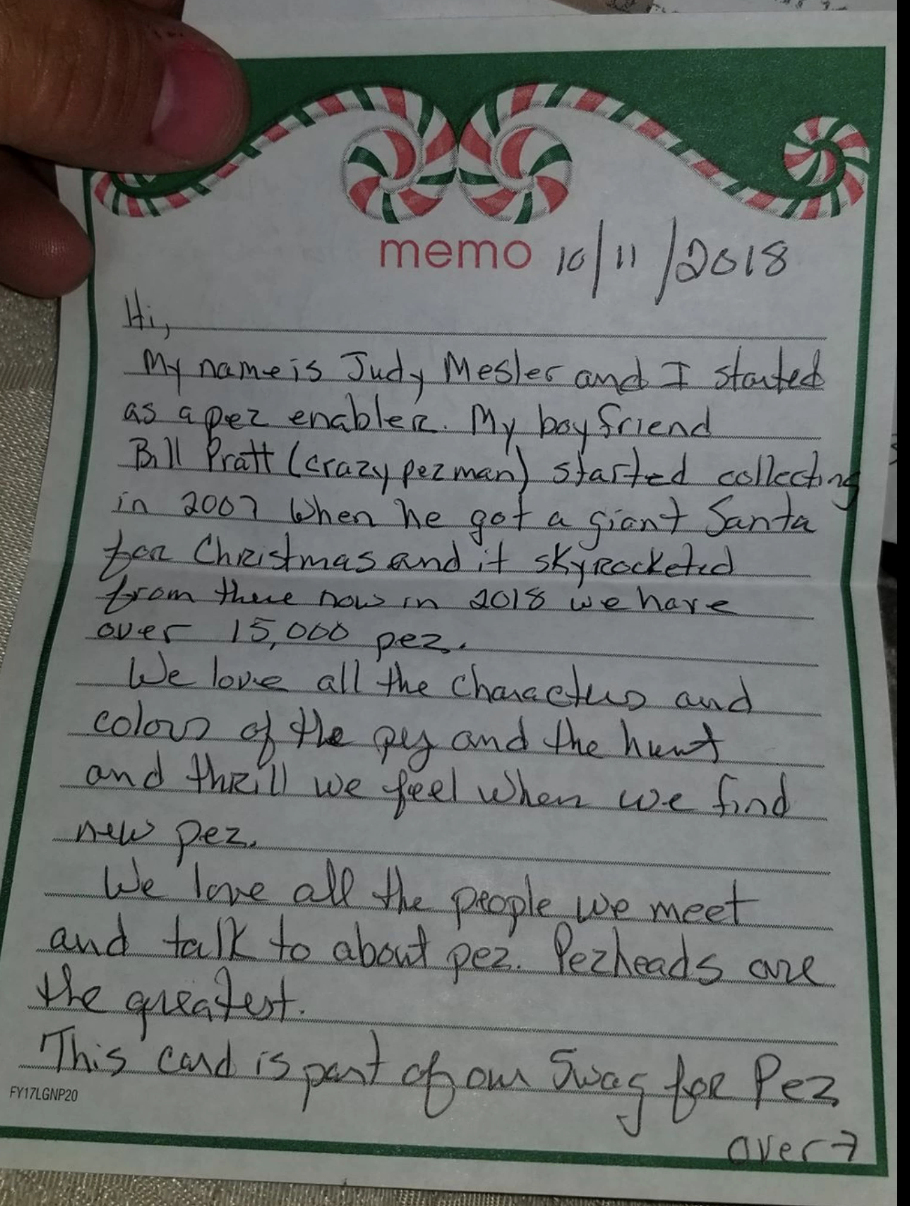 memo 10/11/2018
Hi,
My name is Judy Mesler and I started
as a pez enabler. My boyfriend
Bill Pratt (crazypezman) started collecting
in 2007 when he got a giant Santa
for Christmas and it skyrocketed
from there now in 2018 we have
over 15,000 pez.
We love all the characters and
colors of the pez and the hunt
and thrill we feel when we find
new pez.
We love all the people we meet
and talk to about pez. Pezheads are
the greatest.
This card is part of our Swag for Pez
FY17LGNP20
over→